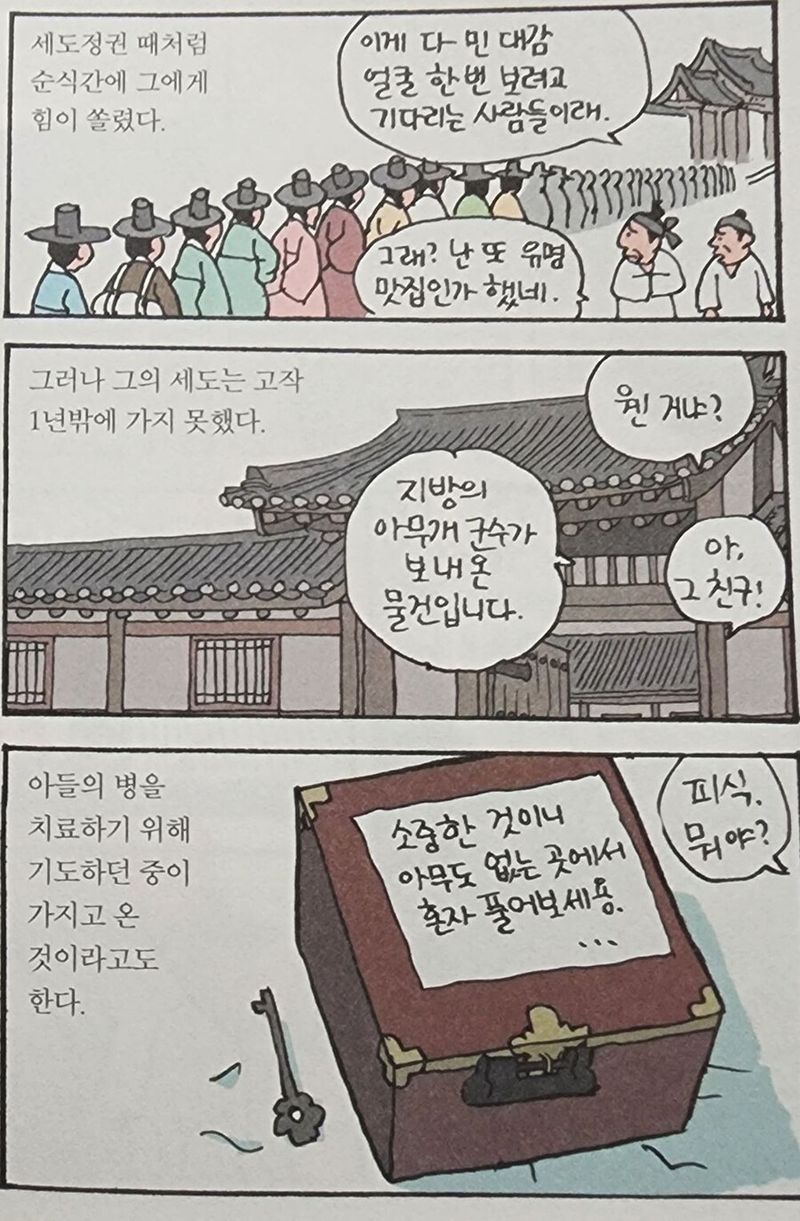 세도정권 때처럼
순식간에 그에게
힘이 쏠렸다.
이게 다 민 대감
얼굴 한 번 보려고
기다리는 사람들이래.
그래? 난 또 유명
맛집인가 했네.
그러나 그의 세도는 고작
1년밖에 가지 못했다.
웬 거냐?
지방의
아무개 군수가
보내온
물건입니다.
아,
그 친구!
아들의 병을
치료하기 위해
기도하던 중이
가지고 온
것이라고도
한다.
소중한 것이니
아무도 없는 곳에서
혼자 풀어보세용.
...
피식.
뭐야?